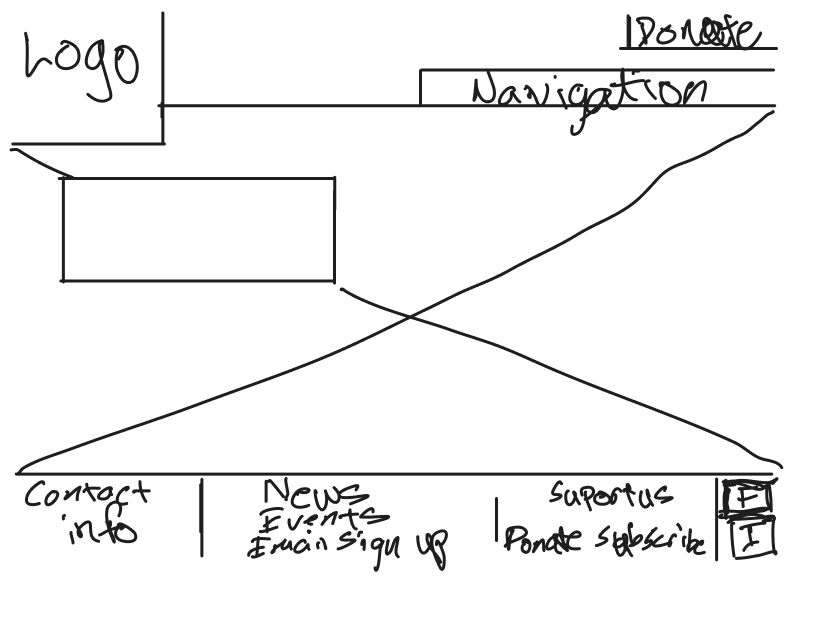 Logo
Donate
Navigation
Contact
info
News
Events
Email sign up
Suport us
Donate subscribe
F
I